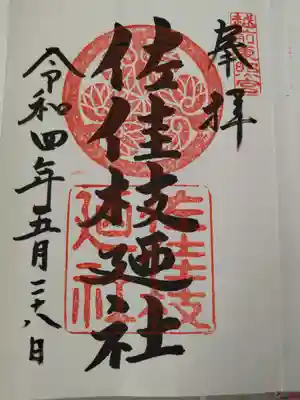 奉拝
佐佳枝廼社
佐佳枝
廼社
令和四年五月二十八日